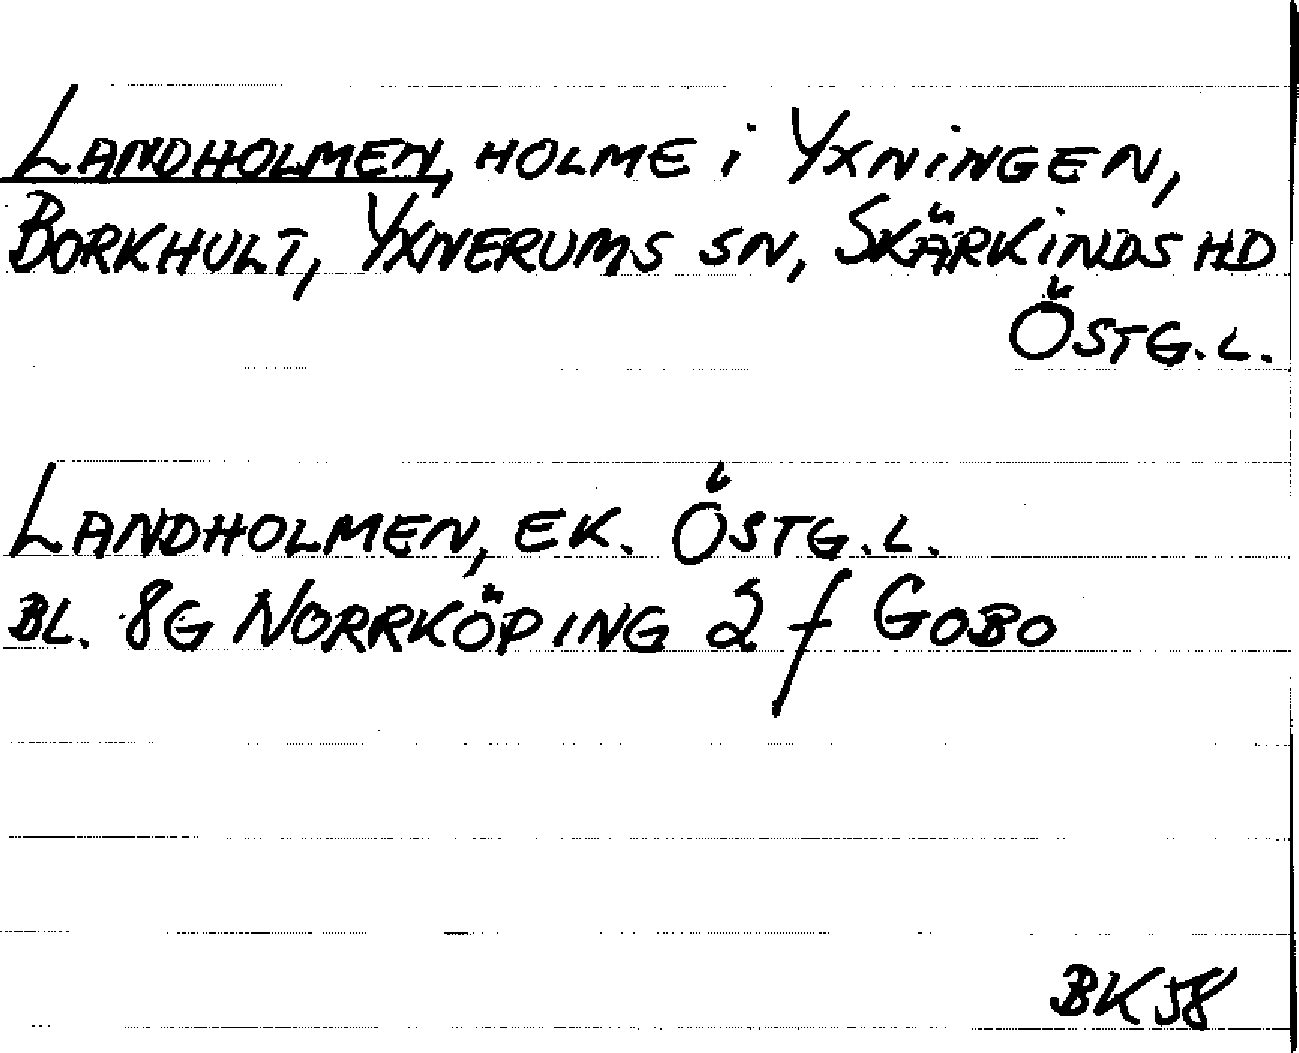 LANDHOLMEN, HOLME i YXNiNGEN,
BORKHULT, YXNERUMS SN, SKÄRKiNDS HD
ÖSTG.L.
LANDHOLMEN, EK. ÖSTG.L.
BL. 8G NORRKÖPING 2 f GOBO
BK58